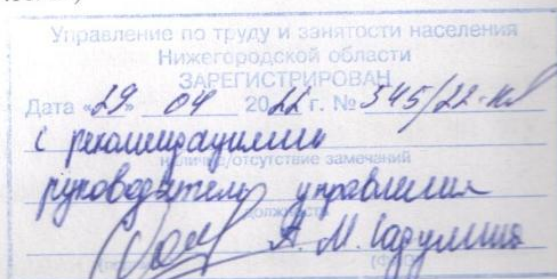 Управление по труду и занятости населения
Нижегородской области
ЗАРЕГИСТРИРОВАН
Дата «29» 04 2022 г. № 545/22-кд
с рекомендациями
наличие/отсутствие замечаний
руководитель управления
должность
А. М.